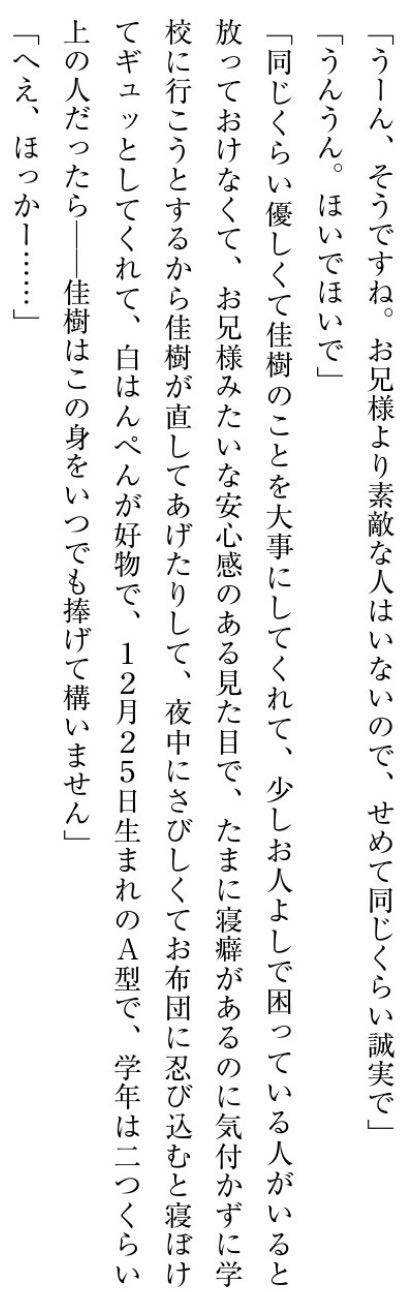 「うーん、そうですね。お兄様より素敵な人はいないので、せめて同じくらい誠実で」
「うんうん。ほいでほいで」
「同じくらい優しくて佳樹のことを大事にしてくれて、少しお人よしで困っている人がいると
放っておけなくて、お兄様みたいな安心感のある見た目で、たまに寝癖があるのに気付かずに学
校に行こうとするから佳樹が直してあげたりして、夜中にさびしくてお布団に忍び込むと寝ぼけ
てギュッとしてくれて、白はんぺんが好物で、12月25日生まれのA型で、学年は二つくらい
上の人だったら――佳樹はこの身をいつでも捧げて構いません」
「へえ、ほっかー……」